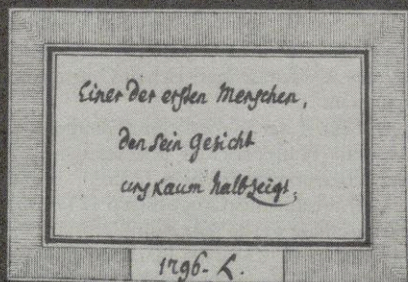 Einer der ersten Menschen,
den sein Gesicht
uns kaum halbzeigt.
1796. L.